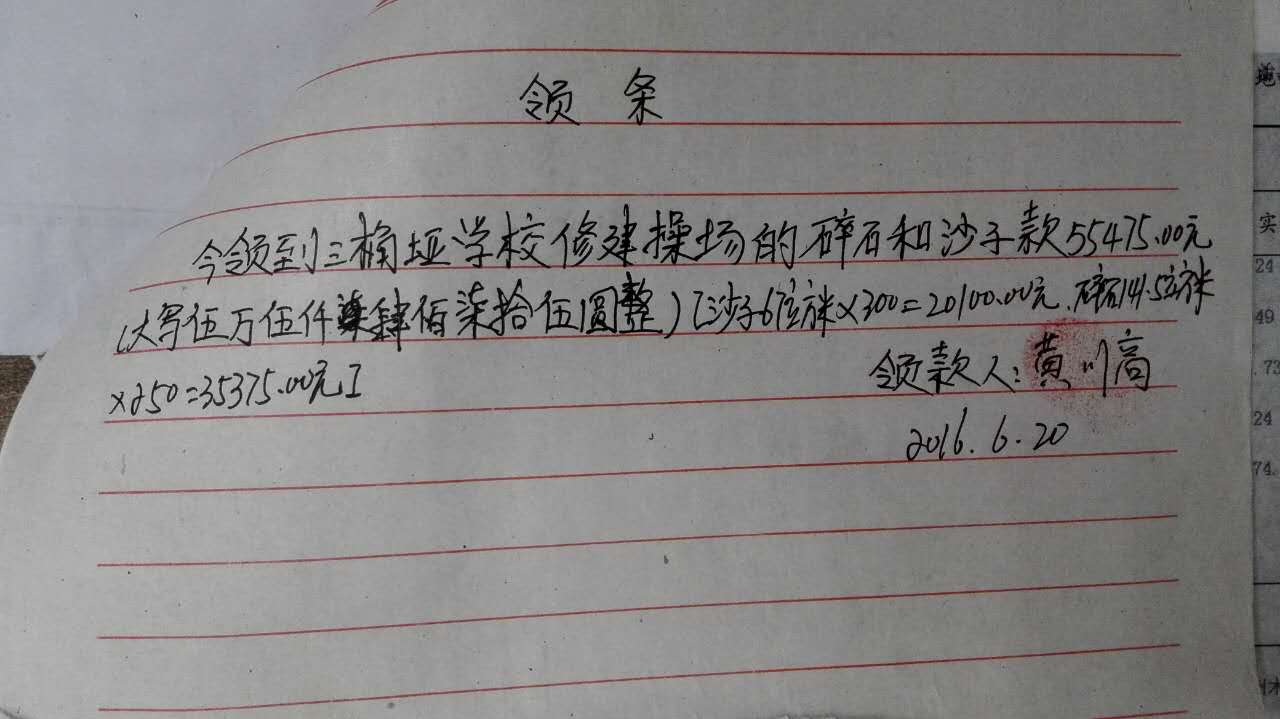 领 条
今领到三桷垭学校修建操场的碎石和沙子款55475.00元
(大写伍万伍仟肆佰柒拾伍圆整)[沙子67立方米×300=20100.00元.碎石141.5立方米
×250=35375.00元]
领款人:黄川高
2016.6.20
实
24
49
.73
24
74.